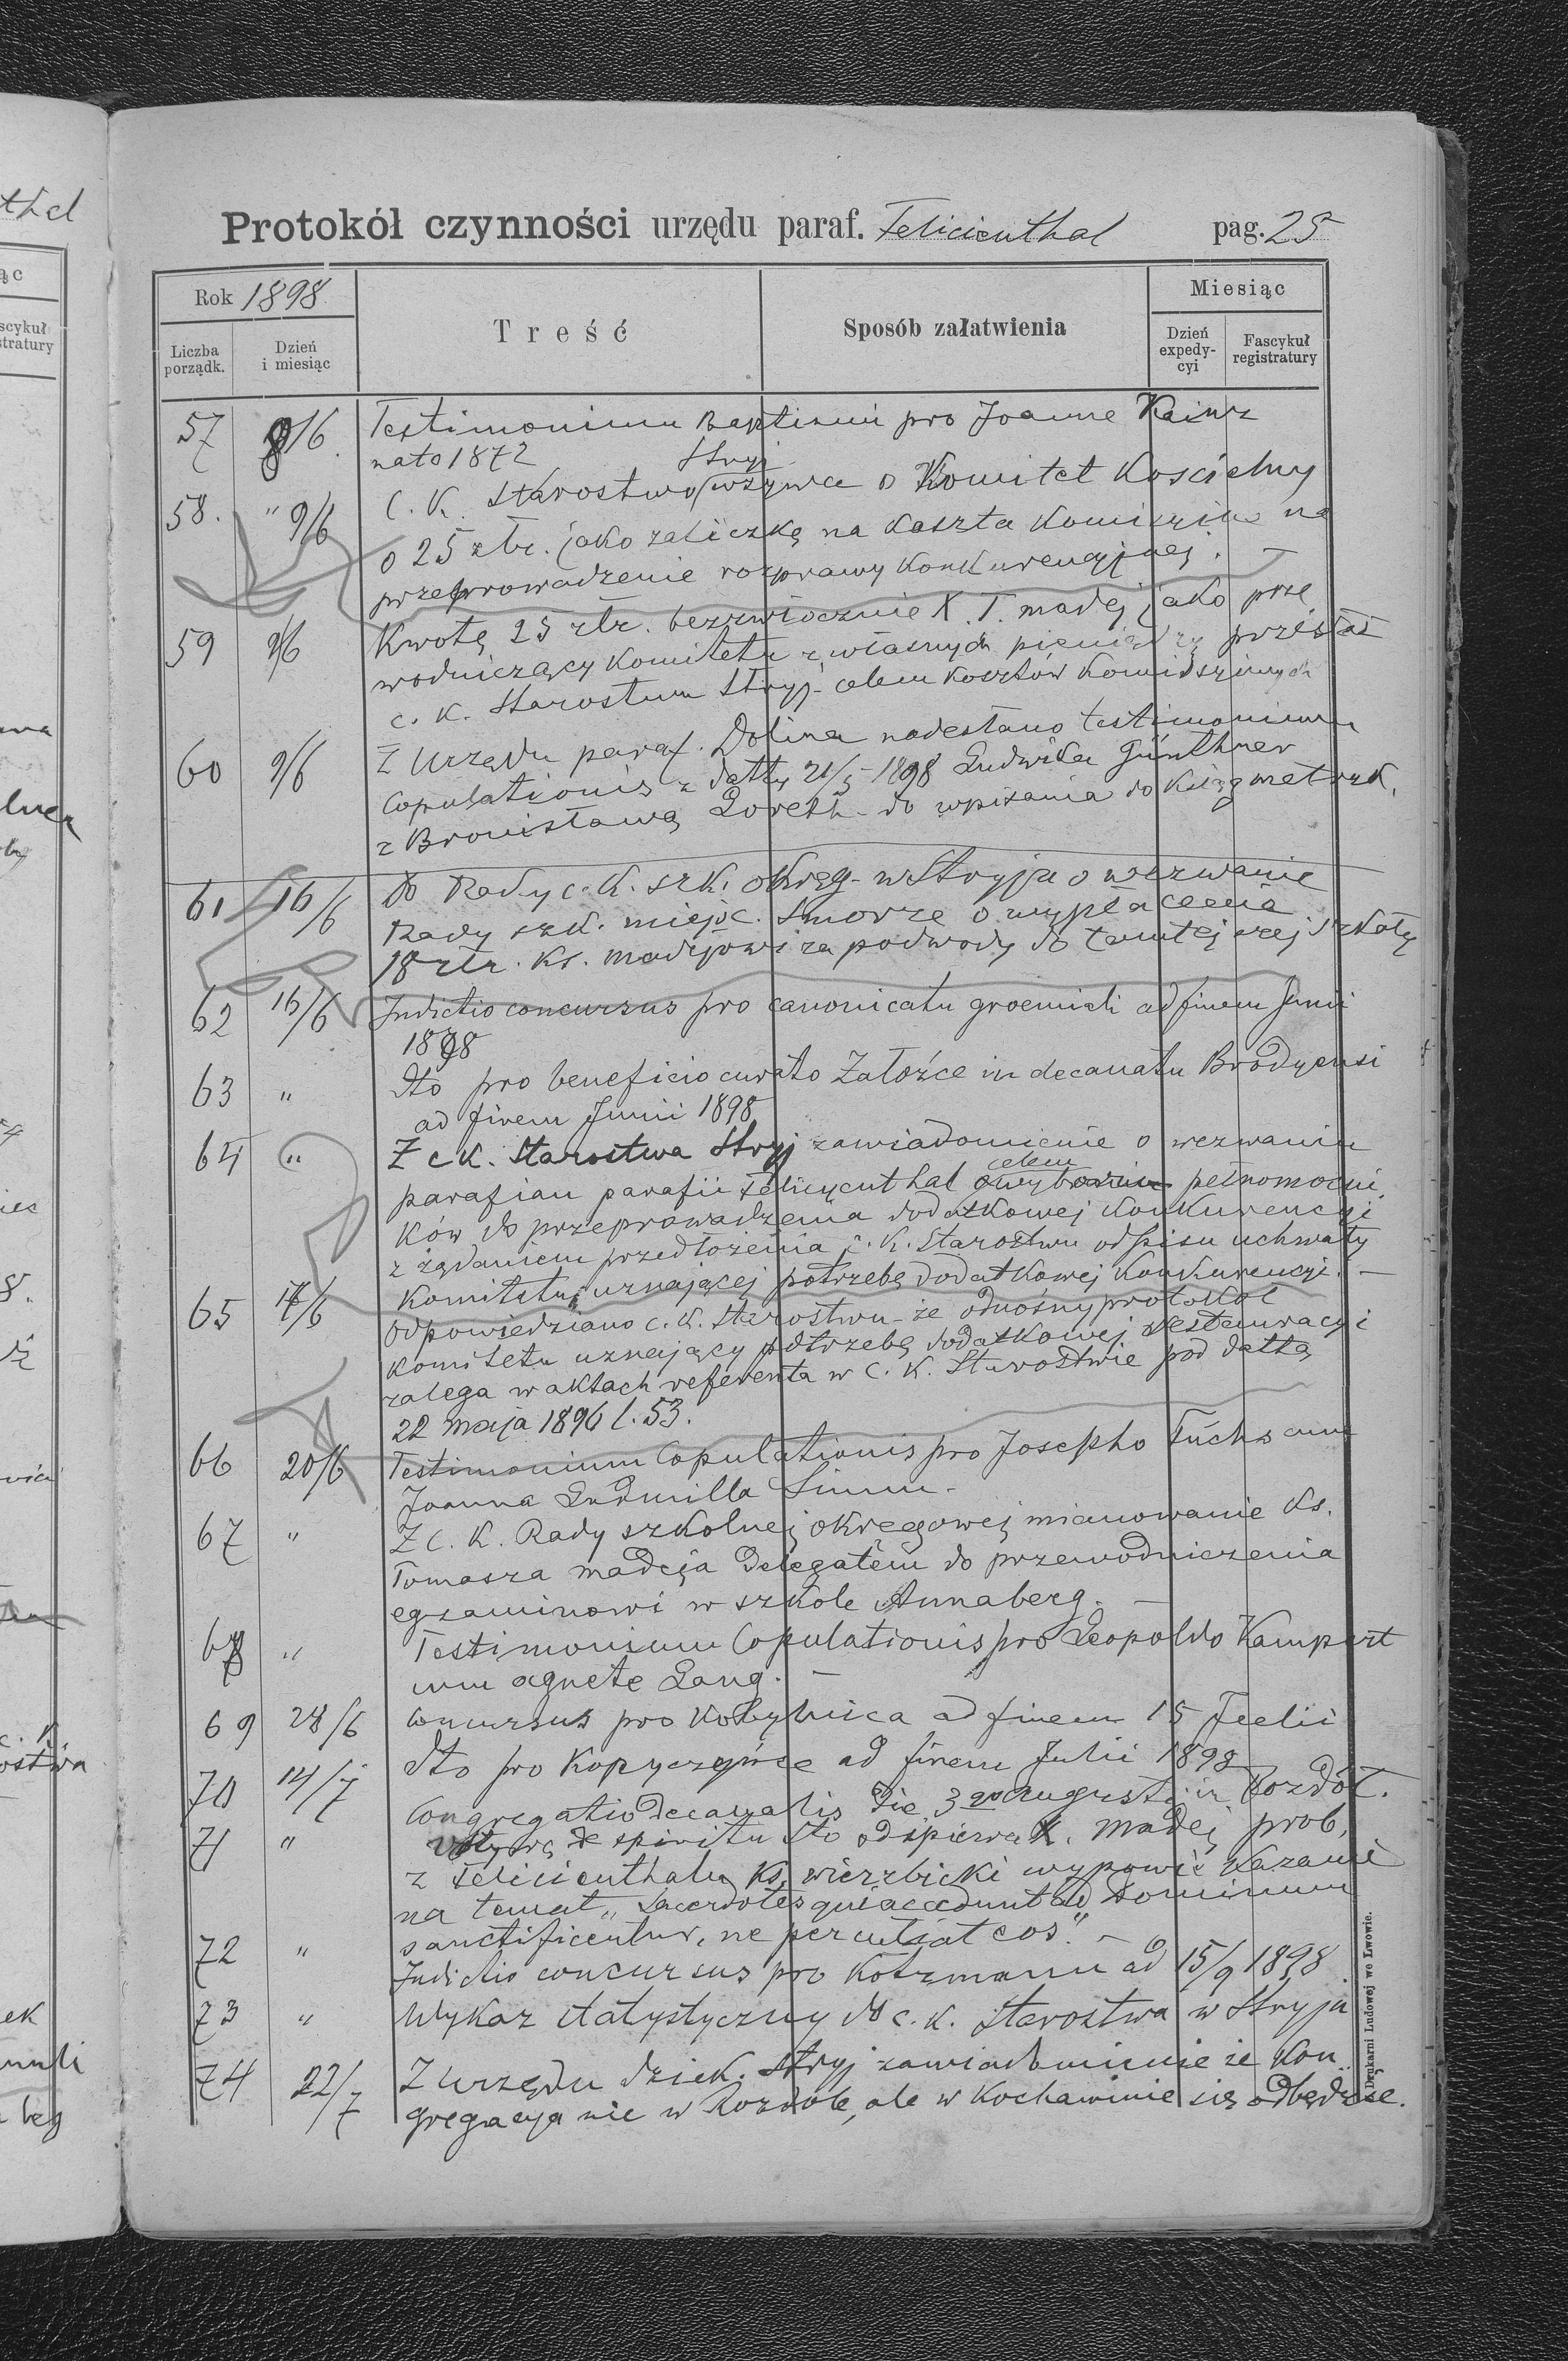 Protokół czynności urzędu paraf. Felicienthal pag. 25
Rok 1898
Treść
Sposób załatwienia
Miesiąc
Liczba porządk.
Dzień i miesiąc
Dzień expedy-cyi
Fascykuł registratury
57 8/6. Testimonium Baptismi pro Joanne Kainz
nato 1872
Stryj
58. " 9/6 C. K. Starostwo wzywa o Komitet Kościelny
o 25 złr. jako zaliczkę na koszta Komiszine na
przeprowadzenie rozprawy konkurencyjnej. —
59 9/6 Kwotę 25 złr. bezzwłocznie X. T. Madej jako prze
wodniczący Komitetu z własnych pieniędzy przesłał
c. k. Starostwu Stryj - celem kosztów komidszinych
60 9/6 Z Urzędu paraf. Dolina nadesłano testimonium
Copulationis z datty 21/5 1898 Ludwika Günthner
z Bronisławą Loreth - do wpisania do Ksiąg metryk.
61 16/6 Do Rady c. k. szk. okręg. w Stryju o wezwanie
Rady szk. miejsc. Smorze o wypłacenie
18 złr. Ks. Madejowi za podwody do tamtejszej szkoły
62 16/6 Indictio concursus pro canonicatu graemiali ad finem Junii
1898
63 " dto pro beneficio curato Załoźce in decanatu Brodyensi
ad finem Junii 1898
64 " Z c k. Starostwa Stryj zawiadomienie o wezwaniu
celem
parafian parafii Felicyenthal o wyborin pełnomocni
ków do przeprowadzenia dodatkowej Konkurencyi
z żądaniem przedłożenia c. k. Starostwu odpisu uchwały
Komitetu uznającej potrzebę dodatkowej Konkurencyi. —
65 17/6 odpowiedziano c. k. Starostwu - że odnośny protokół
komitetu uznający potrzebę dodatkowej restauracyi
zalega w aktach referenta w C. K. Starostwie pod dattą
22 maja 1896 l. 53.
66 20/6 Testimonium Copulationis pro Josepho Fuchs cum
Joanna Ludmilla Simm -
67 " Z c. K. Rady szkolnej okręgowej mianowanie Ks.
Tomasza Madeja Delegatem do przewodniczenia
egzaminowi w szkole Annaberg. —
68 " Testimonium Copulationis pro Leopoldo Kampert
cum Agnete Lang. —
69 28/6 Concursus pro Kobylnica ad finem 15 Julii
70 14/7 dto pro Kopyczyńce ad finem Julii 1898
71 " Congregatio decanalis die 3 Augusti in Rozdół.
Votywę de spiritu sto odspiewa X. Madej prob.
z Felicienthalu Ks. Wierzbicki wypowie Kazanie
na temat „Sacerdotes qui accedunt ad Dominum
sanctificentur, ne percutiat eos." —
72 " Indictio concursus pro Kotzmann ad 15/9 1898
73 " Wykaz statystyczny do c. k. Starostwa w Stryju
74 22/7 Z urzędu dziek. Stryj zawiadomienie że Kon
gregacya nie w Rozdole, ale w Kochawinie się odbędzie.
Z Drukarni Ludowej we Lwowie.